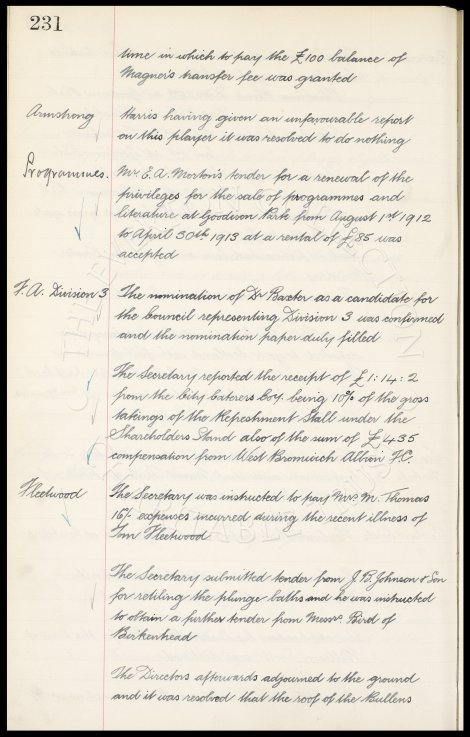 231
time in which to pay the £100 balance of
Magner's transfer fee was granted
Armstrong
Harris having given an unfavourable report
on this player it was resolved to do nothing
Programmes.
Mr E. A. Morton's tender for a renewal of the
privileges for the sale of programmes and
literature at Goodison Park from August 1st 1912
to April 30th 1913 at a rental of £85 was
accepted
F. A. Division 3
The nomination of Dr Baxter as a candidate for
the Council representing Division 3 was confirmed
and the nomination paper duly filled
The Secretary reported the receipt of £1:14:2
from the City Caterers Coy being 10% of the gross
takings of the Refreshment Stall under the
Shareholders Stand also of the sum of £435
compensation from West Bromwich Albion F.C.
Fleetwood
The Secretary was instructed to pay Mrs M. Thomas
16/- expenses incurred during the recent illness of
Tom Fleetwood
The Secretary submitted tender from J. B. Johnson & Son
for retiling the plunge baths and he was instructed
to obtain a further tender from Messrs. Bird of
Birkenhead
The Directors afterwards adjourned to the ground
and it was resolved that the roof of the Bullens